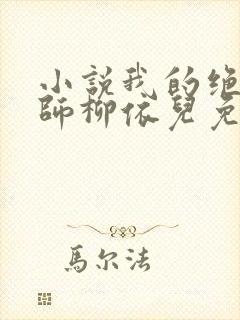 小說我的绝
師柳依兒免
馬尔法